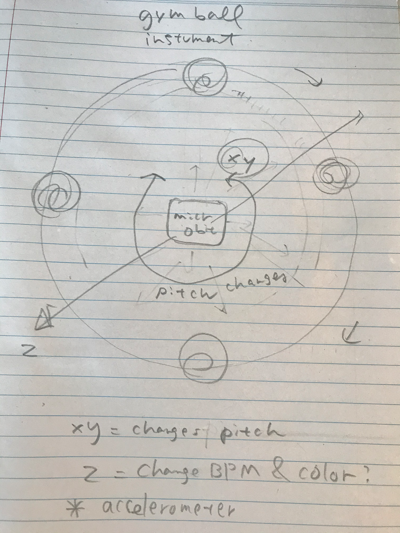 gym ball
instument
xy
micro
obit
pitch changes
z
xy = changes pitch
z = change BPM & color?
* accelerometer